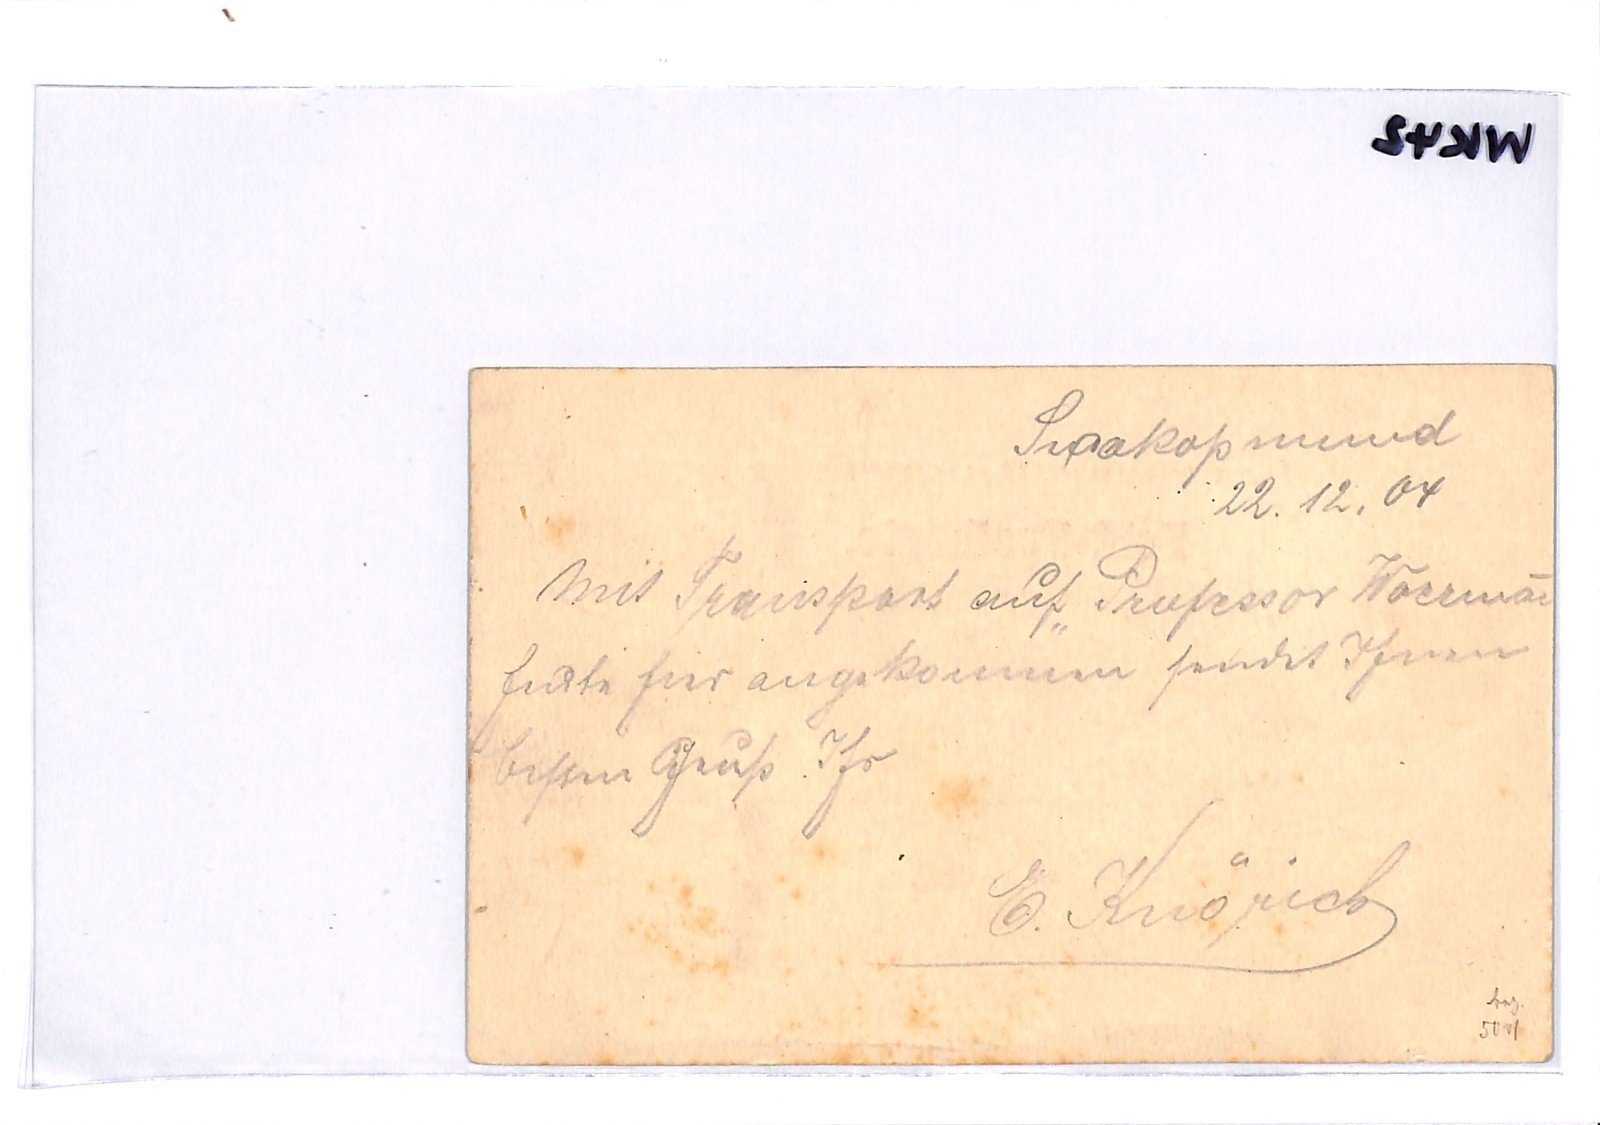 MK45
Swakopmund
22. 12. 04
Mit Transport auf „Professor Woermañ
heute hier angekommen sendet Ihnen
besten Gruß Ihr
E.